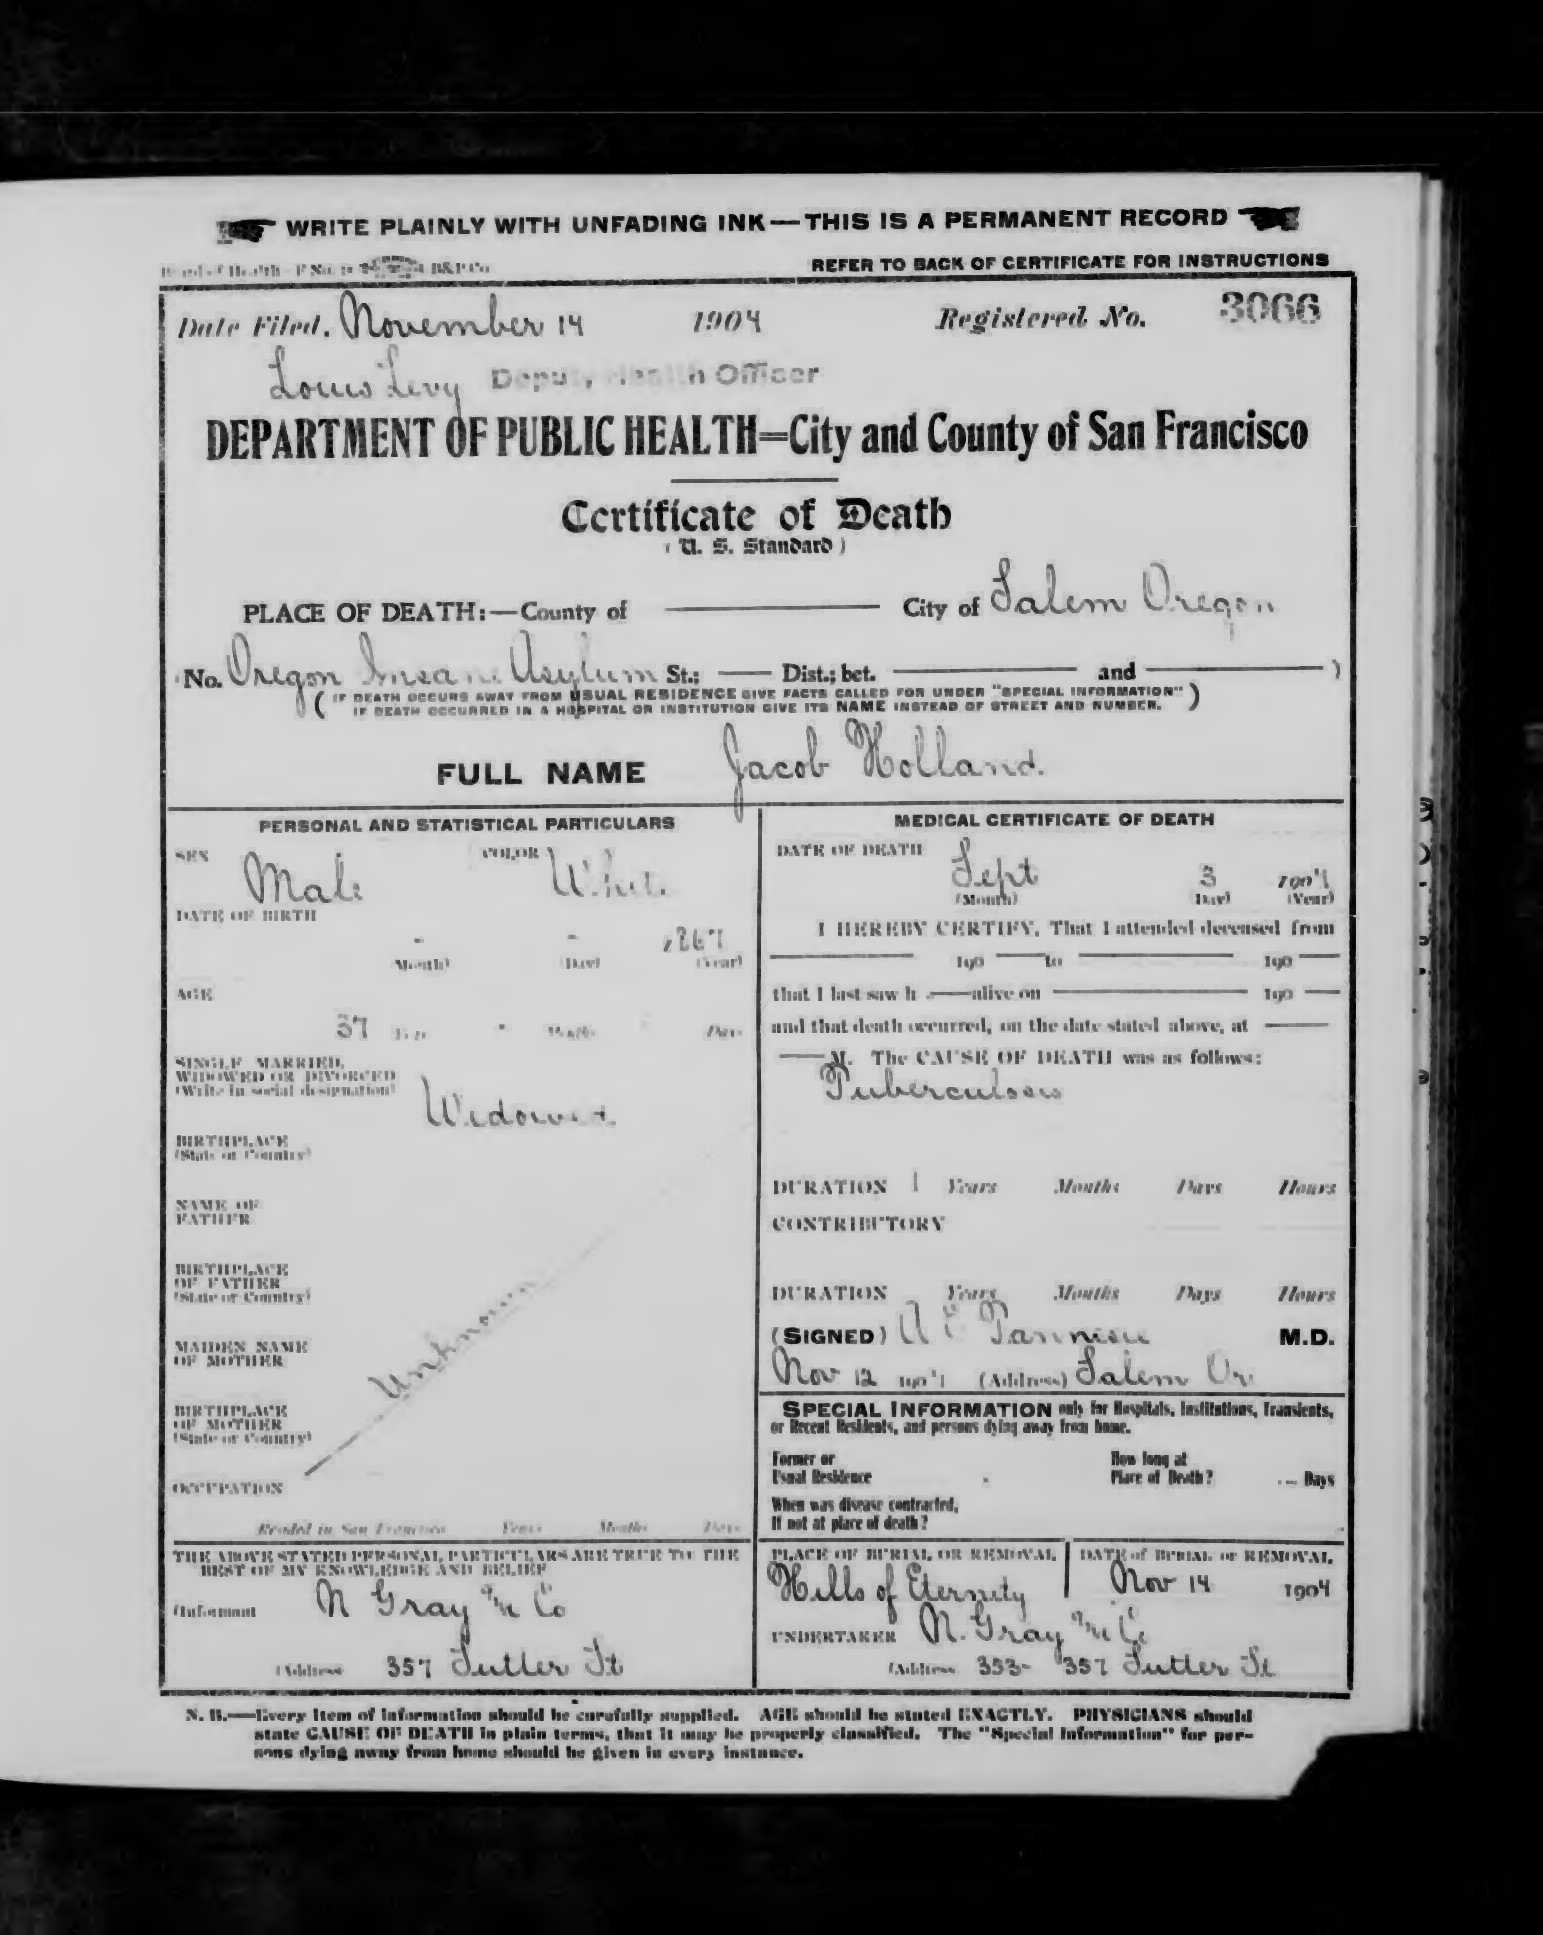 WRITE PLAINLY WITH UNFADING INK—THIS IS A PERMANENT RECORD
REFER TO BACK OF CERTIFICATE FOR INSTRUCTIONS
Date Filed, November 14 1904 Registered No. 3066
Louis Levy Deputy Health Officer
DEPARTMENT OF PUBLIC HEALTH=City and County of San Francisco
Certificate of Death
(U. S. Standard)
PLACE OF DEATH:—County of ——— City of Salem Oregon
No. Oregon Insane Asylum St.; —— Dist.; bet. ——— and ———)
(IF DEATH OCCURS AWAY FROM USUAL RESIDENCE GIVE FACTS CALLED FOR UNDER "SPECIAL INFORMATION"
IF DEATH OCCURRED IN A HOSPITAL OR INSTITUTION GIVE ITS NAME INSTEAD OF STREET AND NUMBER.)
FULL NAME Jacob Holland.
PERSONAL AND STATISTICAL PARTICULARS
SEX Male COLOR White
DATE OF BIRTH
- - 1867
(Month) (Day) (Year)
AGE
37 Years - Months Days
SINGLE, MARRIED,
WIDOWED OR DIVORCED
(Write in social designation)
Widowed
BIRTHPLACE
(State or Country)
NAME OF
FATHER
BIRTHPLACE
OF FATHER
(State or Country)
Unknown
MAIDEN NAME
OF MOTHER
BIRTHPLACE
OF MOTHER
(State or Country)
OCCUPATION
Resided in San Francisco Years Months Days
THE ABOVE STATED PERSONAL PARTICULARS ARE TRUE TO THE
BEST OF MY KNOWLEDGE AND BELIEF
(Informant N Gray & Co
(Address 357 Sutter St
MEDICAL CERTIFICATE OF DEATH
DATE OF DEATH
Sept 3 1904
(Month) (Day) (Year)
I HEREBY CERTIFY, That I attended deceased from
——— 190 —— to ——— 190 ——
that I last saw h —— alive on ——— 190 ——
and that death occurred, on the date stated above, at ——
—— M. The CAUSE OF DEATH was as follows:
Tuberculosis
DURATION 1 Years Months Days Hours
CONTRIBUTORY
DURATION Years Months Days Hours
(SIGNED) M.D.
Nov 12 1904 (Address) Salem Or
SPECIAL INFORMATION only for Hospitals, Institutions, Transients,
or Recent Residents, and persons dying away from home.
Former or
Usual Residence
How long at
Place of Death? Days
When was disease contracted,
If not at place of death?
PLACE OF BURIAL OR REMOVAL
Hills of Eternity
DATE of BURIAL or REMOVAL
Nov 14 1904
UNDERTAKER N. Gray & Co
(Address 353-357 Sutter St
N. B.—Every item of information should be carefully supplied. AGE should be stated EXACTLY. PHYSICIANS should
state CAUSE OF DEATH in plain terms, that it may be properly classified. The "Special Information" for per-
sons dying away from home should be given in every instance.